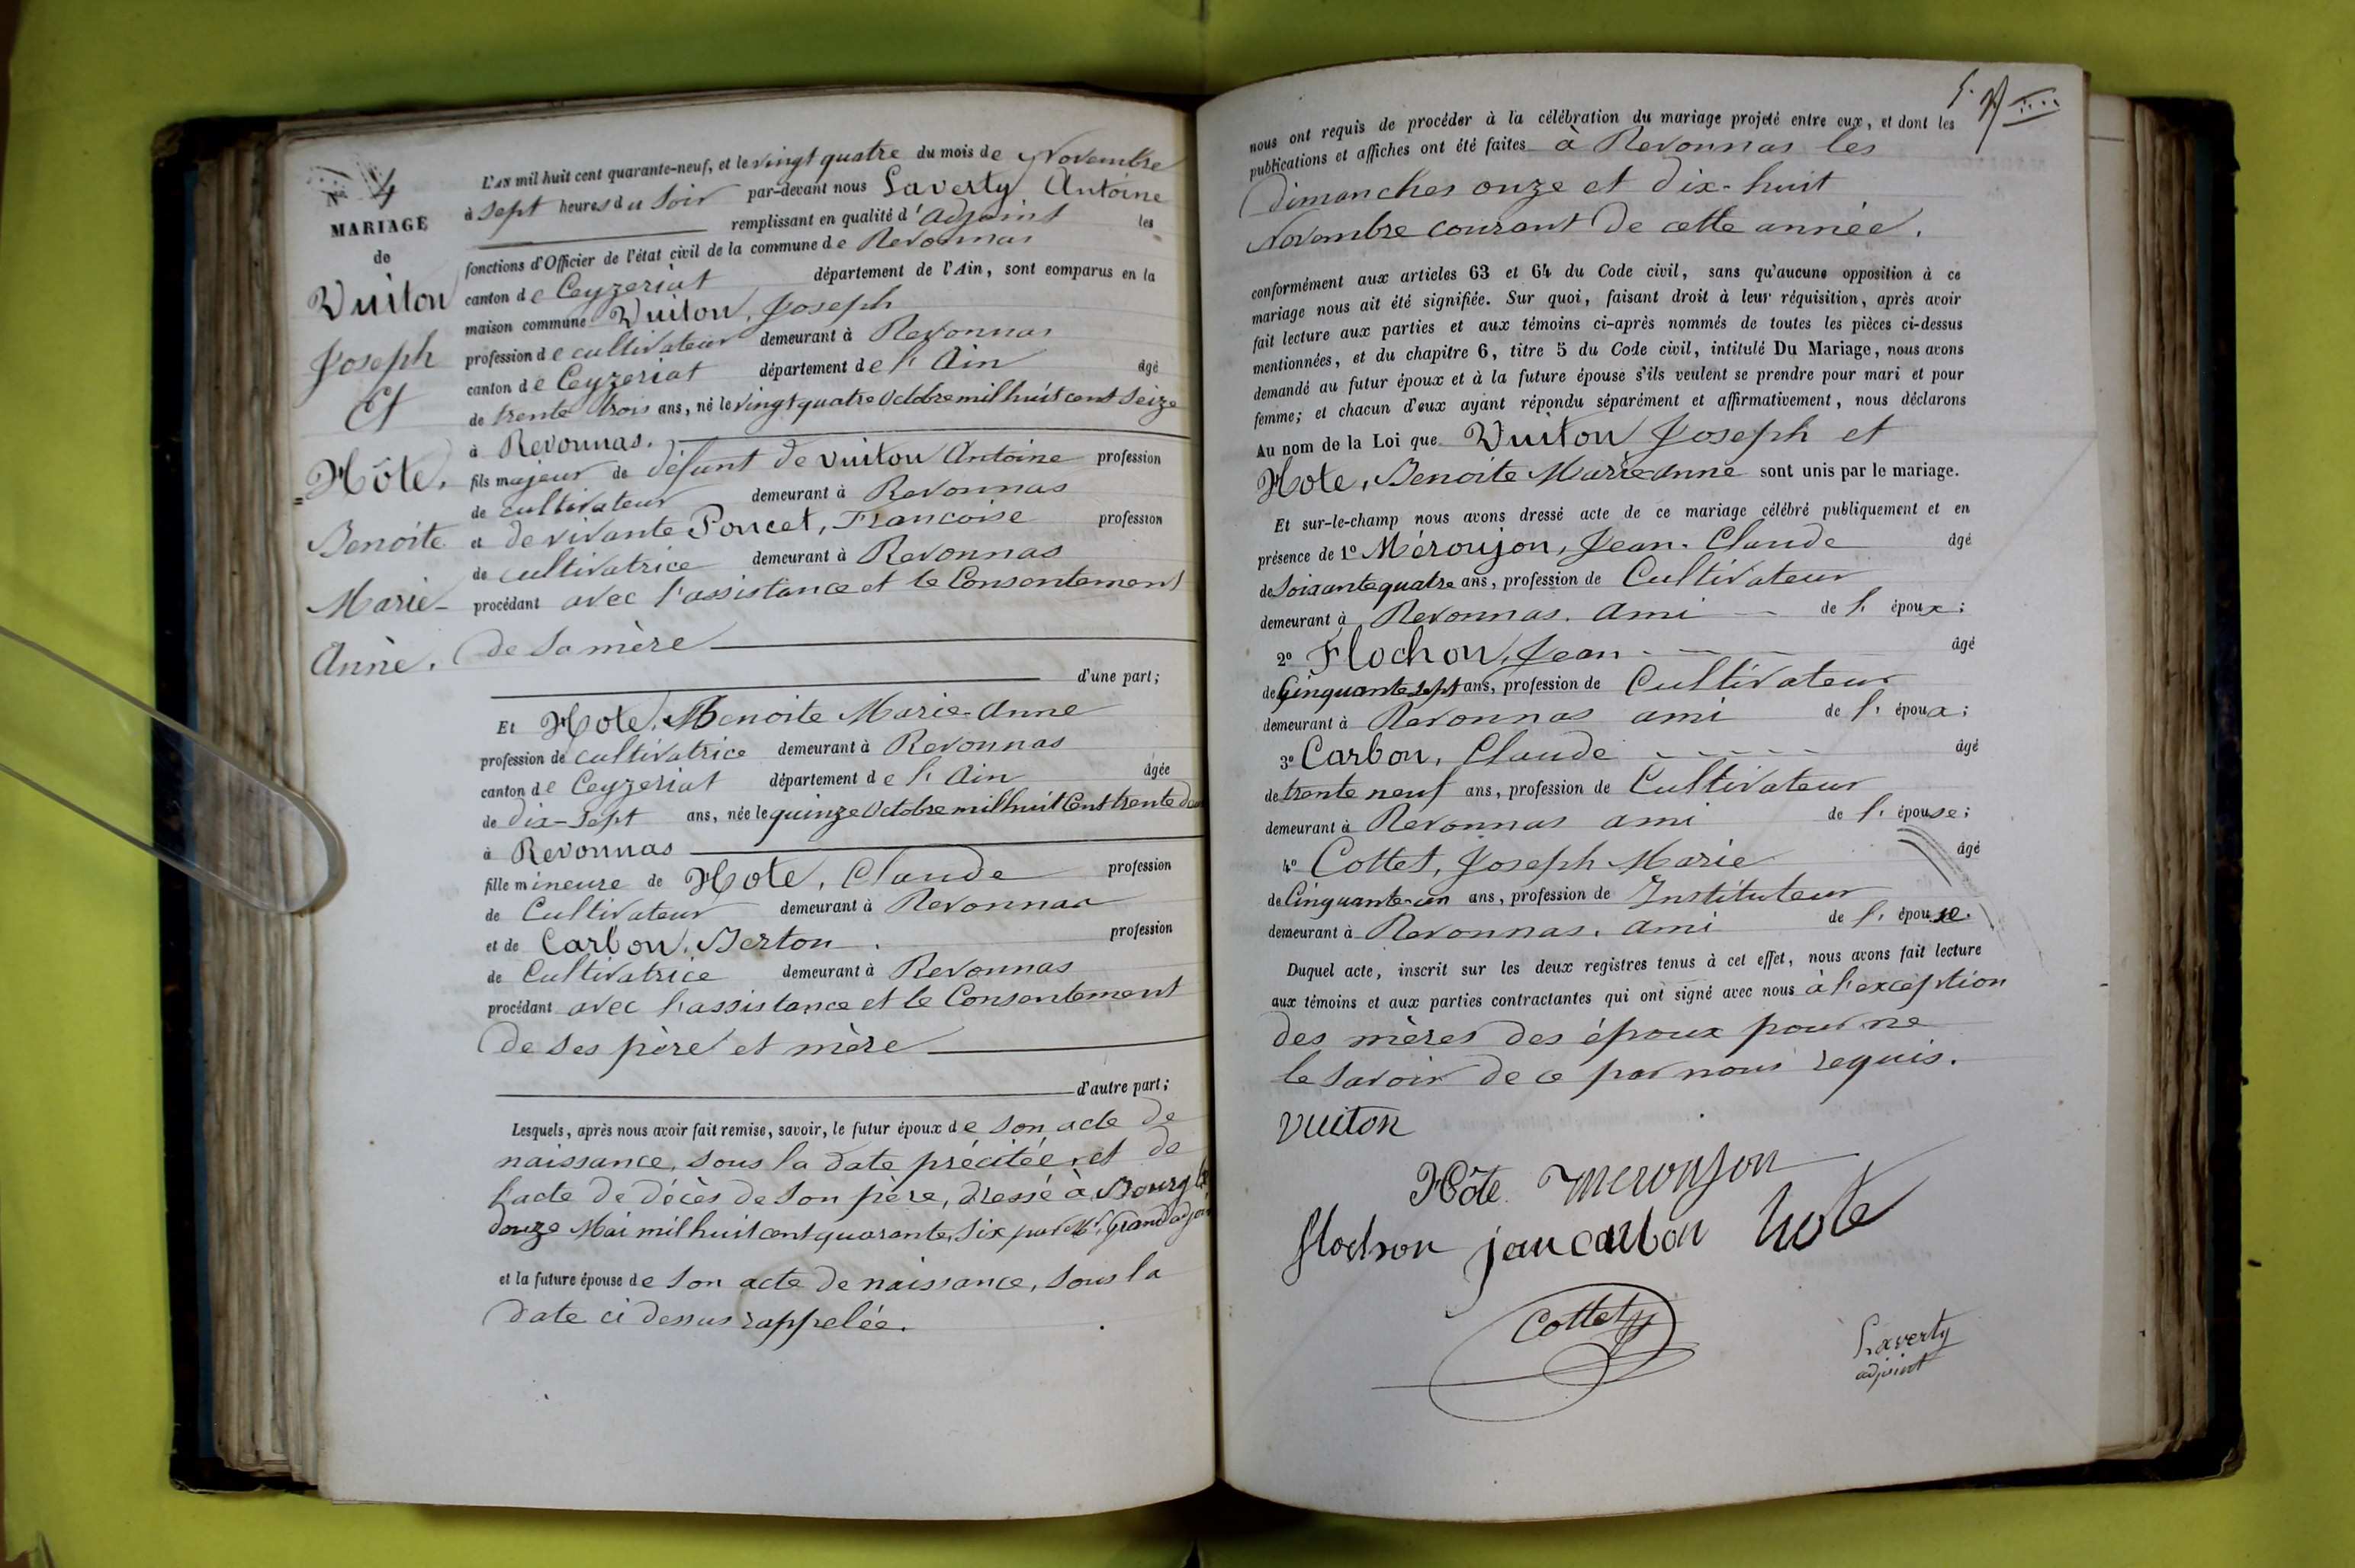 N° 4
MARIAGE
de
Vuiton
Joseph
Et
Hôte,
Benoite
Marie-
Anne.
L'AN mil huit cent quarante-neuf, et le vingt quatre du mois de Novembre
à Sept heures du Soir par-devant nous Laverty Antoine
remplissant en qualité d'adjoint les
fonctions d'Officier de l'état civil de la commune de Revonnas
canton de Ceyzeriat département de l'Ain, sont comparus en la
maison commune Vuiton, Joseph
profession de cultivateur demeurant à Revonnas
canton de Ceyzeriat département de l'Ain âgé
de trente trois ans, né le vingt quatre Octobre mil huit cent Seize
à Revonnas.
fils majeur de défunt de vuiton Antoine profession
de cultivateur demeurant à Revonnas
et de vivante Poncet, Francoise profession
de cultivatrice demeurant à Revonnas
procédant avec l'assistance et le Consentement
de Sa mère
d'une part;
Et Hote, Benoite Marie-Anne
profession de cultivatrice demeurant à Revonnas
canton de Ceyzeriat département de l'Ain âgée
de dix-Sept ans, née le quinze Octobre mil huit Cent trente deux
à Revonnas
fille mineure de Hote, Claude profession
de Cultivateur demeurant à Revonnas
et de Carbon, Berton profession
de Cultivatrice demeurant à Revonnas
procédant avec l'assistance et le Consentement
de Ses père et mère
d'autre part;
Lesquels, après nous avoir fait remise, savoir, le futur époux de Son acte de
naissance, Sous la date précitée, et de
l'acte de décès de Son père, dressé à Bourg le
douze Mai mil huit cent quarante, Six par Mr Grand adjoint
et la future épouse de Son acte de naissance, Sous la
date ci dessus rappelée.
nous ont requis de procéder à la célébration du mariage projeté entre eux, et dont les
publications et affiches ont été faites à Revonnas les
dimanches onze et dix-huit
Novembre courant de cette année.
conformément aux articles 63 et 64 du Code civil, sans qu'aucune opposition à ce
mariage nous ait été signifiée. Sur quoi, faisant droit à leur réquisition, après avoir
fait lecture aux parties et aux témoins ci-après nommés de toutes les pièces ci-dessus
mentionnées, et du chapitre 6, titre 5 du Code civil, intitulé Du Mariage, nous avons
demandé au futur époux et à la future épouse s'ils veulent se prendre pour mari et pour
femme; et chacun d'eux ayant répondu séparément et affirmativement, nous déclarons
Au nom de la Loi que Vuiton Joseph et
Hote, Benoite Marie anne sont unis par le mariage.
Et sur-le-champ nous avons dressé acte de ce mariage célébré publiquement et en
présence de 1° Méroujon, Jean-Claude âgé
de Soixante quatre ans, profession de Cultivateur
demeurant à Revonnas. ami de l'époux;
2° Flochon, Jean âgé
de Cinquante sept ans, profession de Cultivateur
demeurant à Revonnas ami de l'époux;
3° Carbon, Claude âgé
de trente neuf ans, profession de Cultivateur
demeurant à Revonnas ami de l'épouse;
4° Cottet, Joseph-Marie âgé
de Cinquante-un ans, profession de Instituteur
demeurant à Revonnas. ami de l'épouse.
Duquel acte, inscrit sur les deux registres tenus à cet effet, nous avons fait lecture
aux témoins et aux parties contractantes qui ont signé avec nous à l'exception
des mères des époux pour ne
le Savoir de ce par nous requis.
vuiton
Hôte meronjon
flochon jean carbon hote
Cottet
Laverty
adjoint